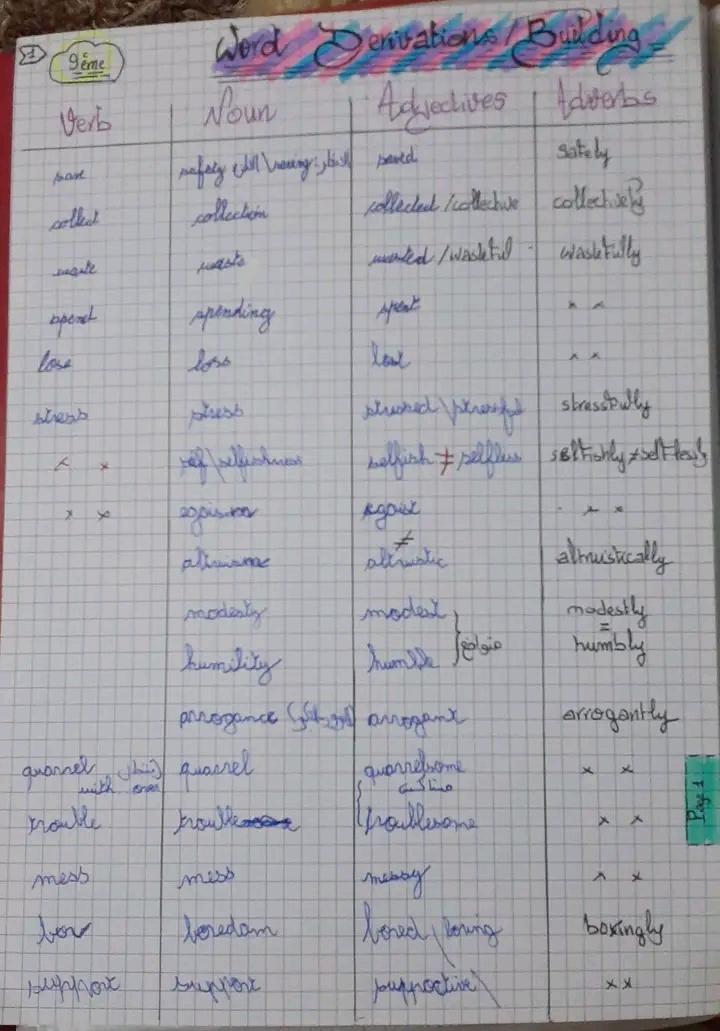 1 9ème Word Derivations/Building
Verb Noun Adjectives Adverbs
save safety \saving: saved safely
collect collection collected/collective collectively
waste waste wasted/wasteful wastefully
spend spending spent x x
lose loss lost x x
stress stress stressed\stressful stressfully
x x self\selfishness selfish ≠ selfless selfishly ≠ selflessly
x x egoism egoist x x
≠
altruistic altruistically
modesty modest modestly
متواضع =
humility humble humbly
arrogance arrogant arrogantly
quarrel quarrel quarrelsome x x
with
trouble trouble troublesome x x
mess mess messy x x
Page 1
boredom bored\boring boringly
support support supportive\ x x